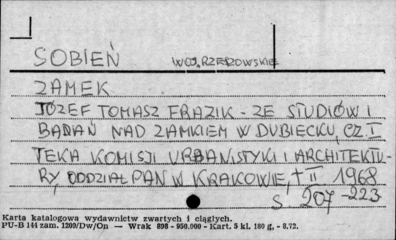 SOBIEŃ WOJ. RZESZOWSKIE
ZAMEK
JÓZEF TOMASZ FRAZIK - ZE STUDIÓW I
BADAŃ NAD ZAMKIEM W DUBIECKU, CZ. I
TEKA KOMISJI URBANISTYKI I ARCHITEKTU-
RY, ODDZIAŁ PAN W KRAKOWIE, t II 1968
S. 207-223
Karta katalogowa wydawnictw zwartych i ciągłych.
PU-B 144 zam. 1209/Dw/On — Wrak 898 - 950.000 - Kart. 5 kl. 180 g. - 8.72.